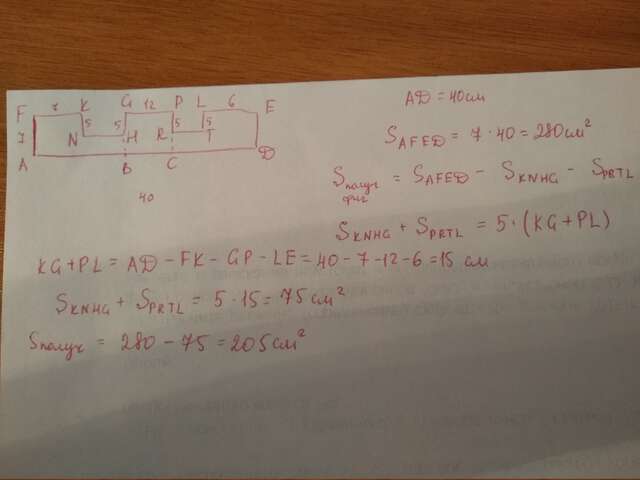 F 7 K G 12 P L 6 E
5 5 5 5
7 N H R T
A B C D
40
AD = 40см
S AFED = 7 · 40 = 280см²
S получ фиг = S AFED − S KNHG − S PRTL
S KNHG + S PRTL = 5 · (KG + PL)
KG + PL = AD − FK − GP − LE = 40 − 7 − 12 − 6 = 15 см
S KNHG + S PRTL = 5 · 15 = 75 см²
S получ = 280 − 75 = 205 см²